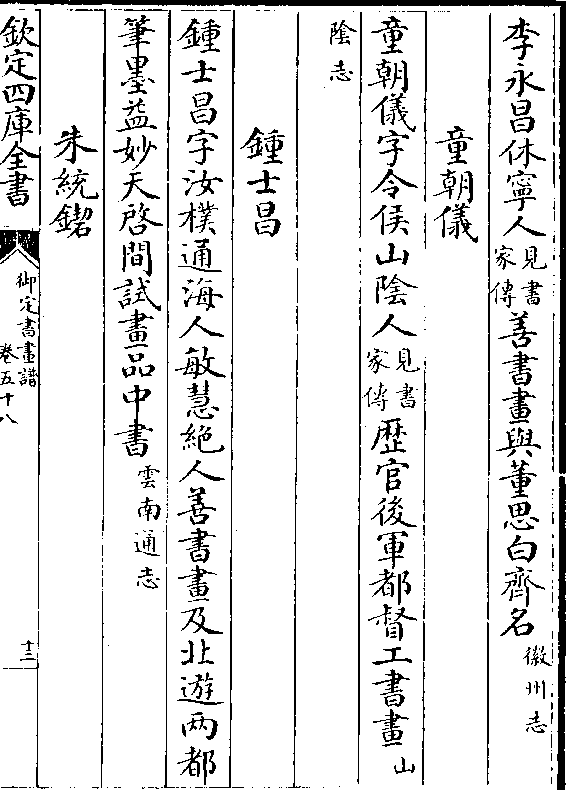 李永昌休寧人見書家傳善書畫與董思白齊名徽州志
童朝儀
童朝儀字令侯山陰人見書家傳歴官後軍都督工書畫山
陰志
鍾士昌
鍾士昌字汝樸通海人敏慧絶人善書畫及北遊两都
筆墨益妙天啓間試畫品中書雲南通志
朱統鍣
欽定四庫全書
御定書畫譜
卷五十八
十二